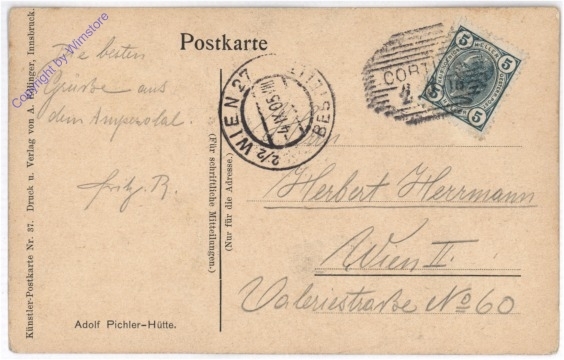 Copyright by Wimstore
Künstler-Postkarte Nr. 37. Druck u. Verlag von A. Edlinger, Innsbruck.
Postkarte
Die besten
Grüße aus
dem
Fritz. R.
Adolf Pichler-Hütte.
(Für schriftliche Mitteilungen.)
(Nur für die Adresse.)
2/2 WIEN 27
BESTELLT
CORT
5 HELLER 5
5 5
Herrn
Herbert Herrmann
Wien II.
Valeriestraße No 60